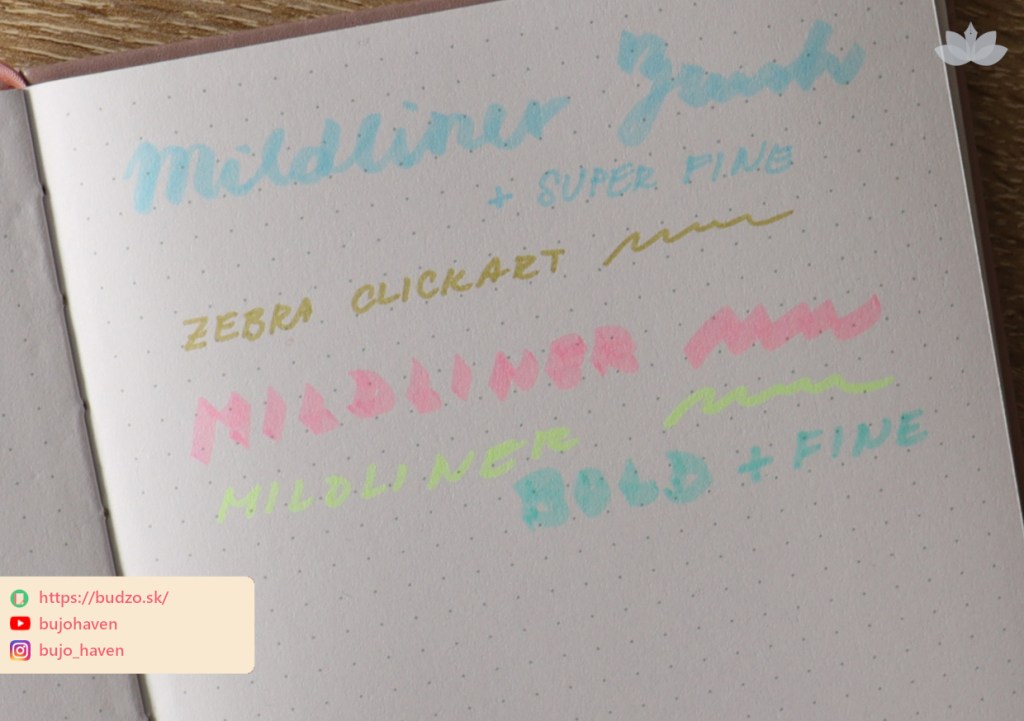 Mildliner Brush
+ SUPER FINE
ZEBRA CLICKART
MILDLINER
MILDLINER
BOLD + FINE
https://budzo.sk/
bujohaven
bujo_haven